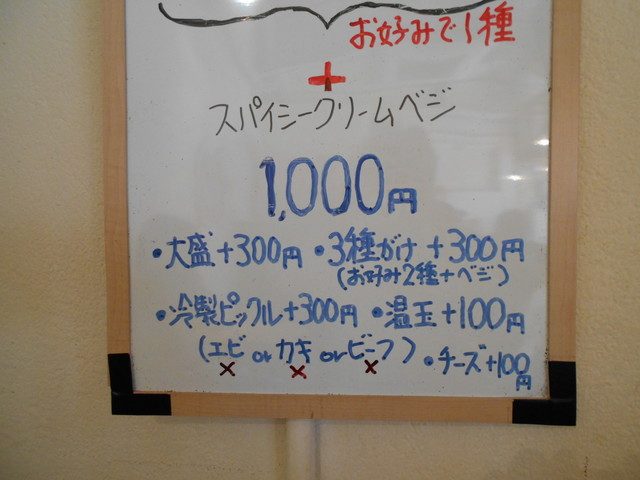 お好みで1種
+
スパイシークリームベジ
1,000円
・大盛+300円 ・3種がけ+300円
(お好み2種+ベジ)
・冷製ピックル+300円 ・温玉+100円
(エビorカキorビーフ) ・チーズ+100円
× × ×